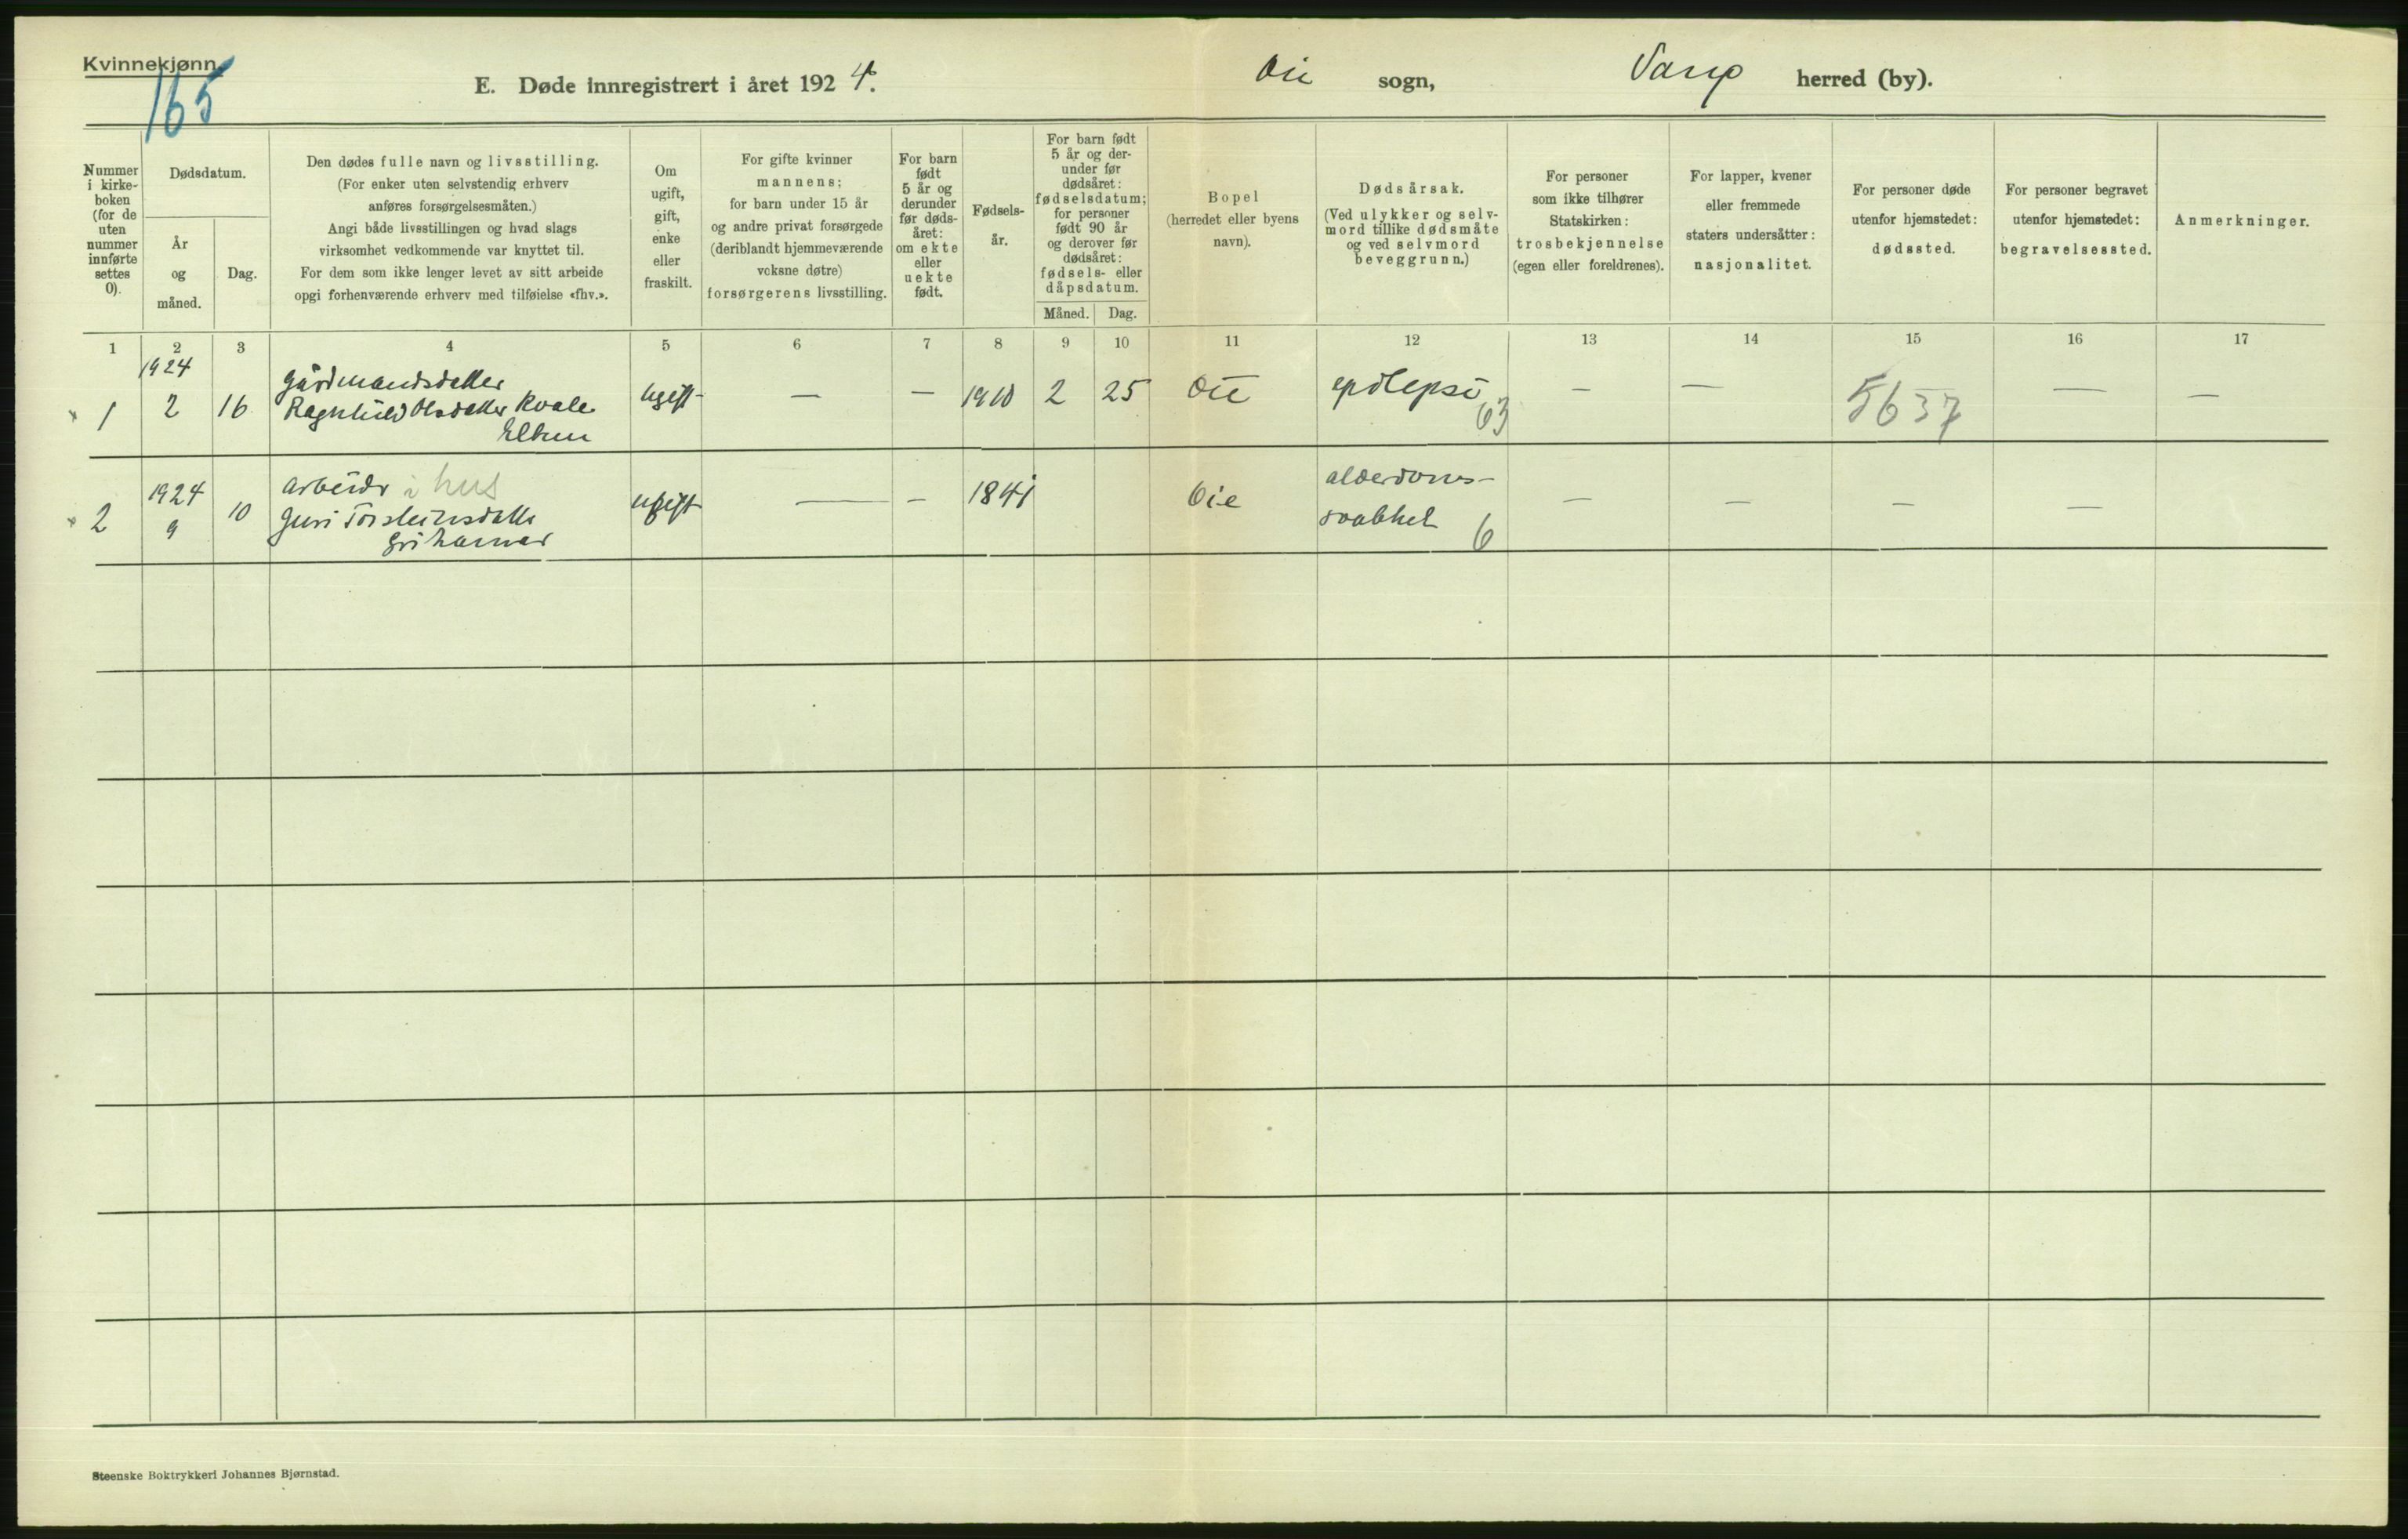 Kvinnekjønn
165
E. Døde innregistrert i året 1924. Øie sogn, Vang herred (by).
Nummer i kirkeboken (for de uten nummer innførte settes 0).
Dødsdatum.
År og måned.
Dag.
Den dødes fulle navn og livsstilling.
(For enker uten selvstendig erhverv
anføres forsørgelsesmåten.)
Angi både livsstillingen og hvad slags
virksomhet vedkommende var knyttet til.
For dem som ikke lenger levet av sitt arbeide
opgi forhenværende erhverv med tilføielse «fhv.».
Om
ugift,
gift,
enke
eller
fraskilt.
For gifte kvinner
mannens;
for barn under 15 år
og andre privat forsørgede
(deriblandt hjemmeværende
voksne døtre)
forsørgerens livsstilling.
For barn
født
5 år og
derunder
før døds-
året:
om ekte
eller
uekte
født.
Fødsels-
år.
For barn født
5 år og der-
under før
dødsåret:
fødselsdatum;
for personer
født 90 år
og derover før
dødsåret:
fødsels- eller
dåpsdatum.
Måned. Dag.
Bopel
(herredet eller byens
navn).
Dødsårsak.
(Ved ulykker og selv-
mord tillike dødsmåte
og ved selvmord
beveggrunn.)
For personer
som ikke tilhører
Statskirken:
trosbekjennelse
(egen eller foreldrenes).
For lapper, kvener
eller fremmede
staters undersåtter:
nasjonalitet.
For personer døde
utenfor hjemstedet:
dødssted.
For personer begravet
utenfor hjemstedet:
begravelsessted.
Anmerkninger.
1 2 3 4 5 6 7 8 9 10 11 12 13 14 15 16 17
1924
Gårdmandsdatter
1 2 16 Ragnhild Olsdatter Kvale ugift — — 1910 2 25 Øie epilepsi 63 — — — 5637 — —
1924 arbeider i hus
2 9 10 Guri Torsteinsdatter ugift — — 1841 Øie alderdoms-
svakhet 6 — — — —
Steenske Boktrykkeri Johannes Bjørnstad.